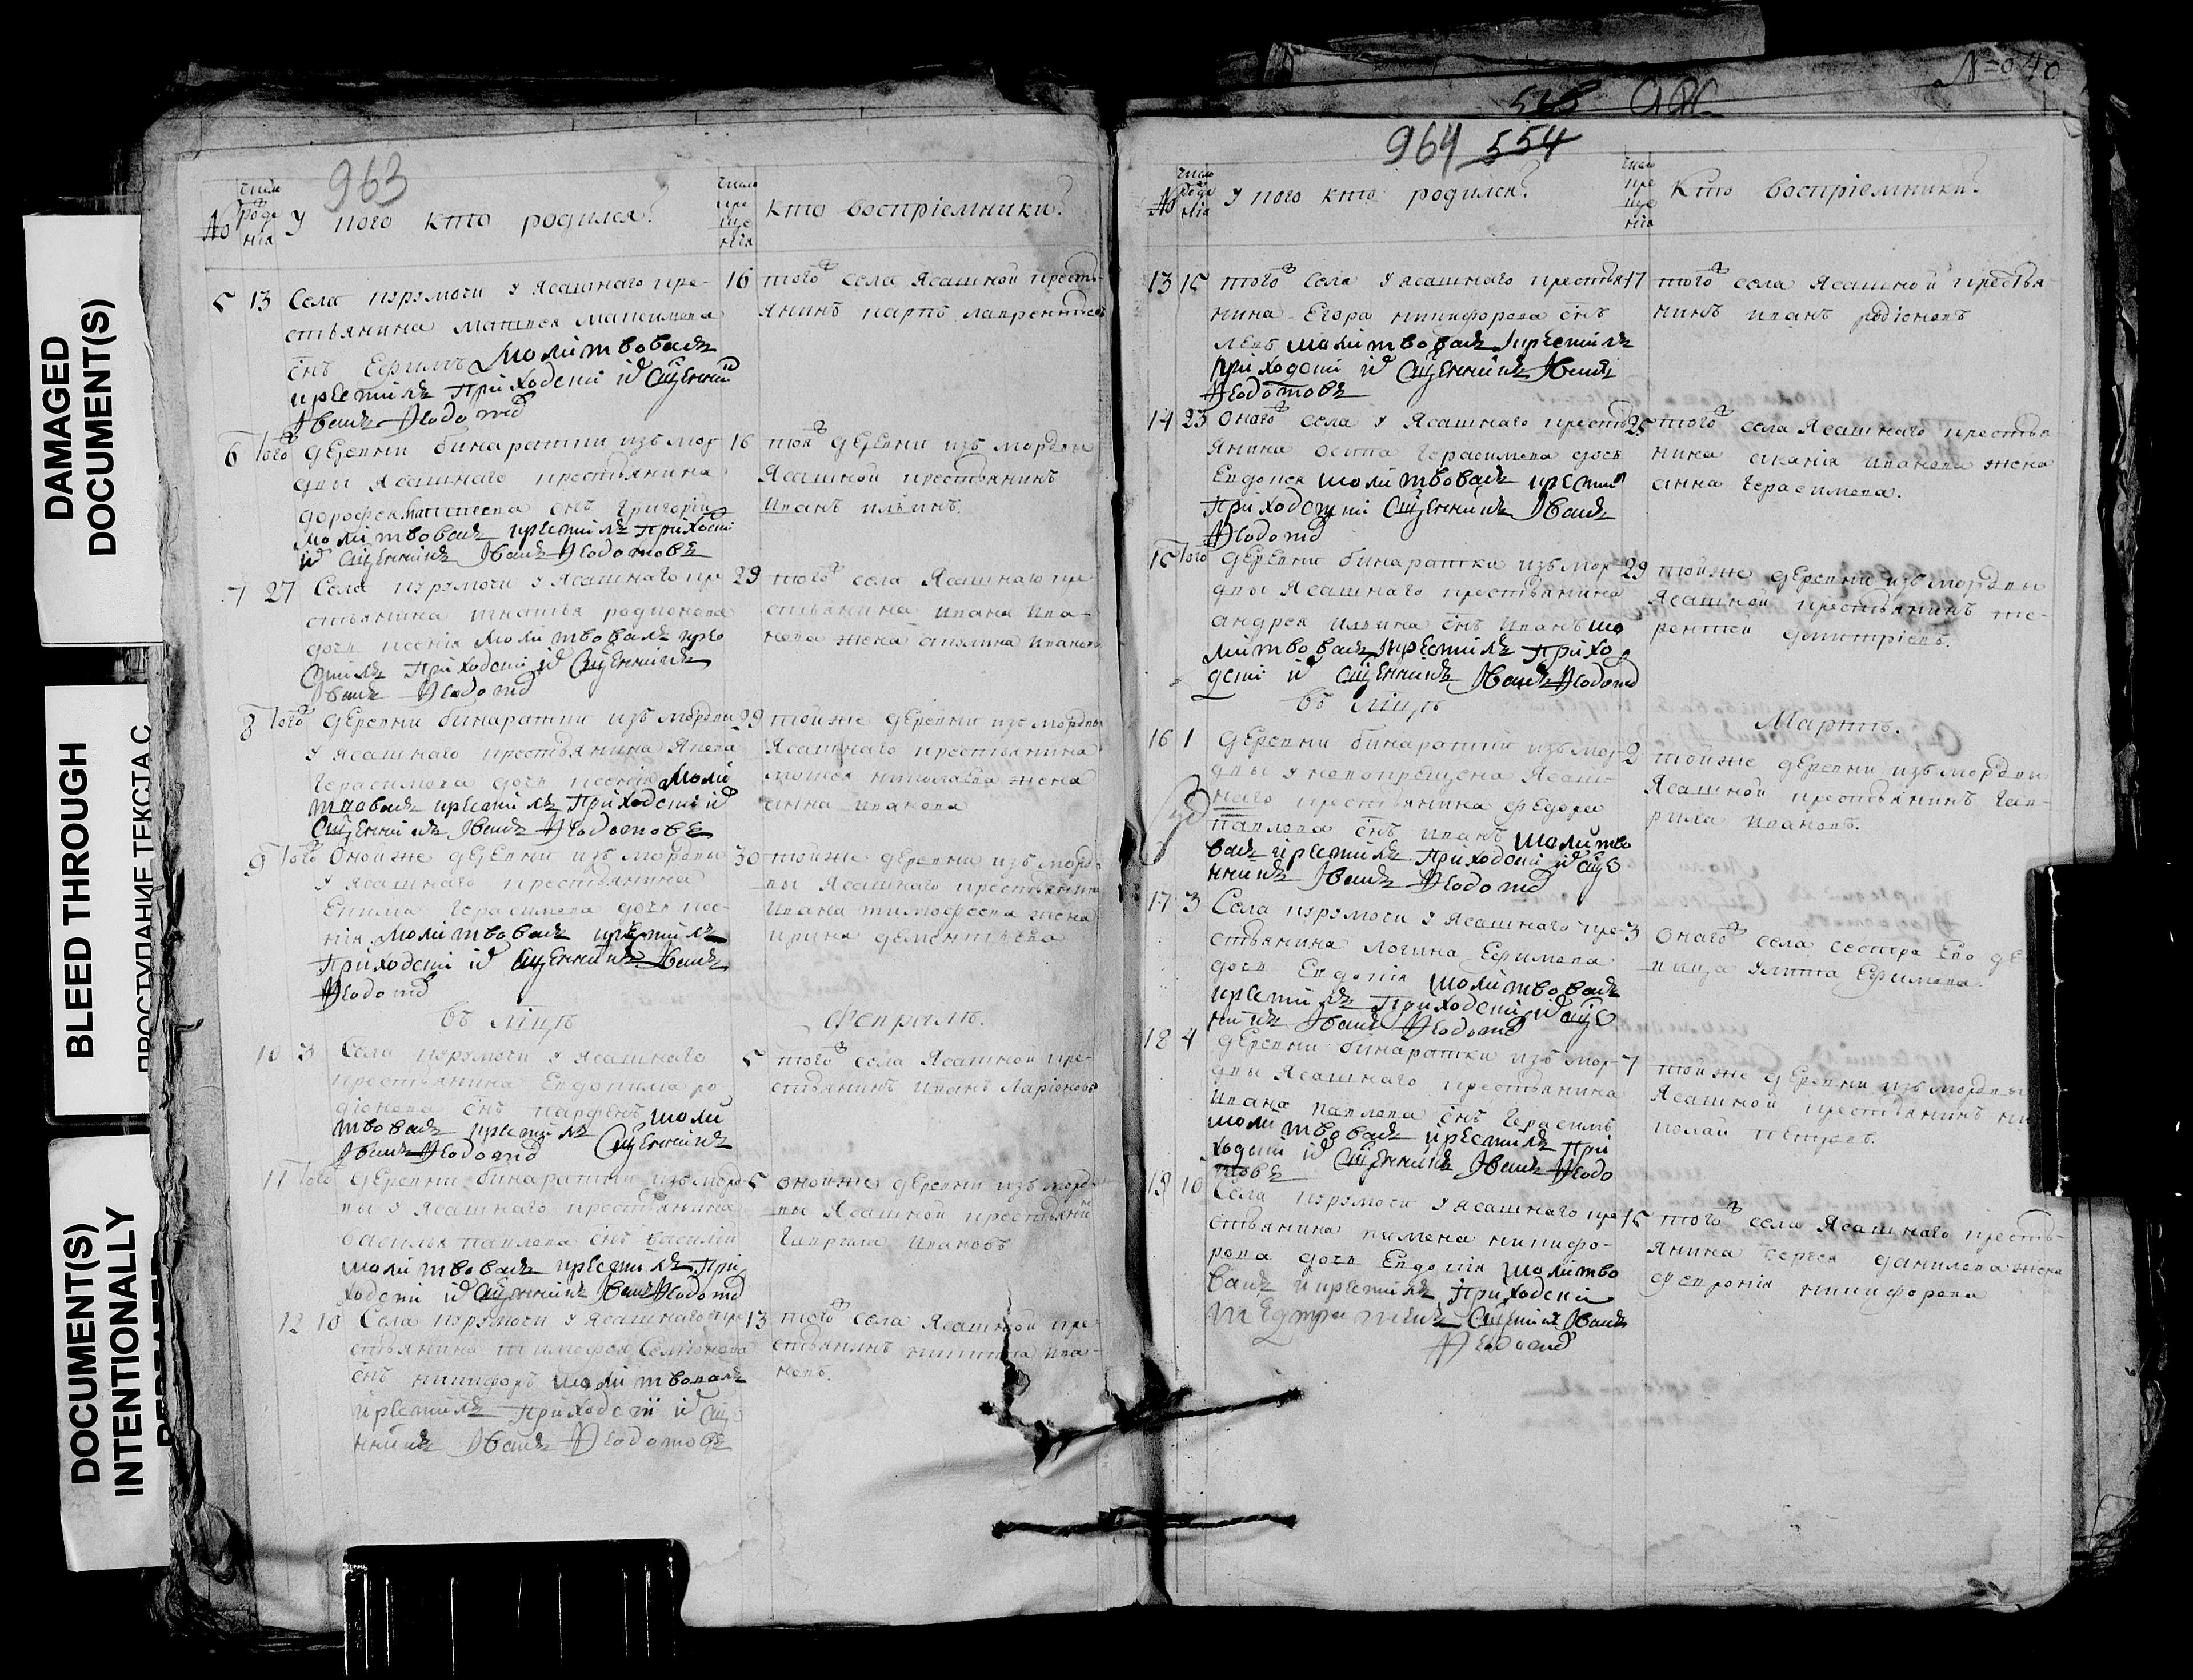 DAMAGED
DOCUMENT(S)
BLEED THROUGH
ПРОСТУПАНИЕ ТЕКСТА С
DOCUMENT(S)
INTENTIONALLY
963
№ число рожденія У кого кто родился? число крещенія Кто воспріемники?
5 13 Села кузмоги у ясашнаго кре-
стьянина Матвея Максимова
снъ Ефимъ молитвовалъ
крестилъ приходскій сщенникъ
Иванъ Ѳедотовъ
16 того села Ясашной кресть-
янинъ карпъ лаврентьевъ
6 того деревни бинаратки изъ мор-
двы ясашнаго крестьянина
дорофея снъ Григорій
молитвовалъ крестилъ приходскі
й сщенникъ Иванъ Ѳедотовъ
16 той деревни изъ мордвы
Ясашной крестьянинъ
Иванъ ильинъ.
7 27 Села кузмоги у ясашнаго кре
стьянина игнатья родионова
дочь ксенія молитвовалъ кре
стилъ приходскій сщенникъ
Иванъ Ѳедотовъ
29 того села Ясашнаго кре-
стьянина Ивана Ива-
нова жена акилина Иванов
8 того деревни бинаратки изъ мордвы
у ясашнаго крестьянина Якова
Герасимова дочь ксенія моли
твовалъ крестилъ приходскій
сщенникъ Иванъ Ѳедотовъ
29 тойже деревни изъ мордвы
Ясашнаго крестьянина
мосея николаева жена
анна иванова
9 того Онойже деревни изъ мордвы
у ясашнаго крестьянина
Екима Герасимова дочь ксе-
нія молитвовалъ крестилъ
приходскій сщенникъ Иванъ
Ѳедотовъ
30 тойже деревни изъ морд-
вы Ясашнаго крестьянина
Ивана тимофеева жена
ирина дементьева
въ мцѣ Февралѣ.
10 3 Села кузмоги у ясашнаго
крестьянина Евдокима ро
діонова снъ парфенъ моли
твовалъ крестилъ сщенникъ
Иванъ Ѳедотовъ
5 того села Ясашной кре-
стьянинъ Иванъ Ларіоновъ
11 того деревни бинаратки изъ морд-
вы у ясашнаго крестьянина
василья павлова снъ василій
молитвовалъ крестилъ при
ходскій сщенникъ Иванъ Ѳедотовъ
5 онойже деревни изъ морд-
вы Ясашной крестьянин
Гаврила Ивановъ
12 10 Села кузмоги у ясашнаго кре
стьянина тимофея Семіонова
снъ никифоръ молитвовалъ
крестилъ приходскій сще
нникъ Иванъ Ѳедотовъ
13 того села Ясашной кре-
стьянинъ никита ива-
новъ.
№ 040
964 554
№ число рожденія У кого кто родился? число крещенія Кто воспріемники?
13 15 того села у ясашнаго крестья
нина Егора никифорова снъ
левъ молитвовалъ крестилъ
приходскій сщенникъ Иванъ
Ѳедотовъ
17 того села Ясашной крестья
нинъ иванъ родіоновъ
14 23 Онаго села у ясашнаго кресть
янина осипа Герасимова дочь
Евдокея молитвовалъ крестил
приходскій сщенникъ Иванъ
Ѳедотовъ
25 того села Ясашнаго крестья
нина иванова жена
анна Герасимова.
15 того деревни бинаратки изъ мор-
двы ясашнаго крестьянина
андрея ильина снъ Иванъ мо
литвовалъ крестилъ прихо
дскій сщенникъ Иванъ Ѳедотовъ
29 тойже деревни изъ мордвы
Ясашной крестьянинъ те-
рентей дмитріевъ.
въ мцѣ Мартѣ.
16 1 деревни бинаратки изъ мор-
двы у новокрещена Ясаш-
наго крестьянина федора
павлова снъ иванъ молитво
валъ крестилъ приходскій сще
нникъ Иванъ Ѳедотовъ
2 тойже деревни изъ мордвы
Ясашной крестьянинъ Гав-
рила Ивановъ.
17 3 Села кузмоги у ясашнаго кре-
стьянина логина Ефимова
дочь Евдокія молитвовалъ
крестилъ приходскій сще
нникъ Иванъ Ѳедотовъ
3 онаго села сестра Его де
вица улита Ефимова.
18 4 деревни бинаратки изъ мор-
двы ясашнаго крестьянина
Ивана павлова снъ Герасимъ
молитвовалъ крестилъ при
ходскій сщенникъ Иванъ Ѳедо
товъ
7 тойже деревни изъ мордвы
Ясашной крестьянинъ ни
колай петровъ.
19 10 Села кузмоги у ясашнаго кре
стьянина пимена никифо-
рова дочь Евдокія молитво
валъ и крестилъ приходскій
сщенникъ Иванъ
Ѳедотовъ
15 того села Ясашнаго кресть-
янина сергея данилова жена
февронія никифорова